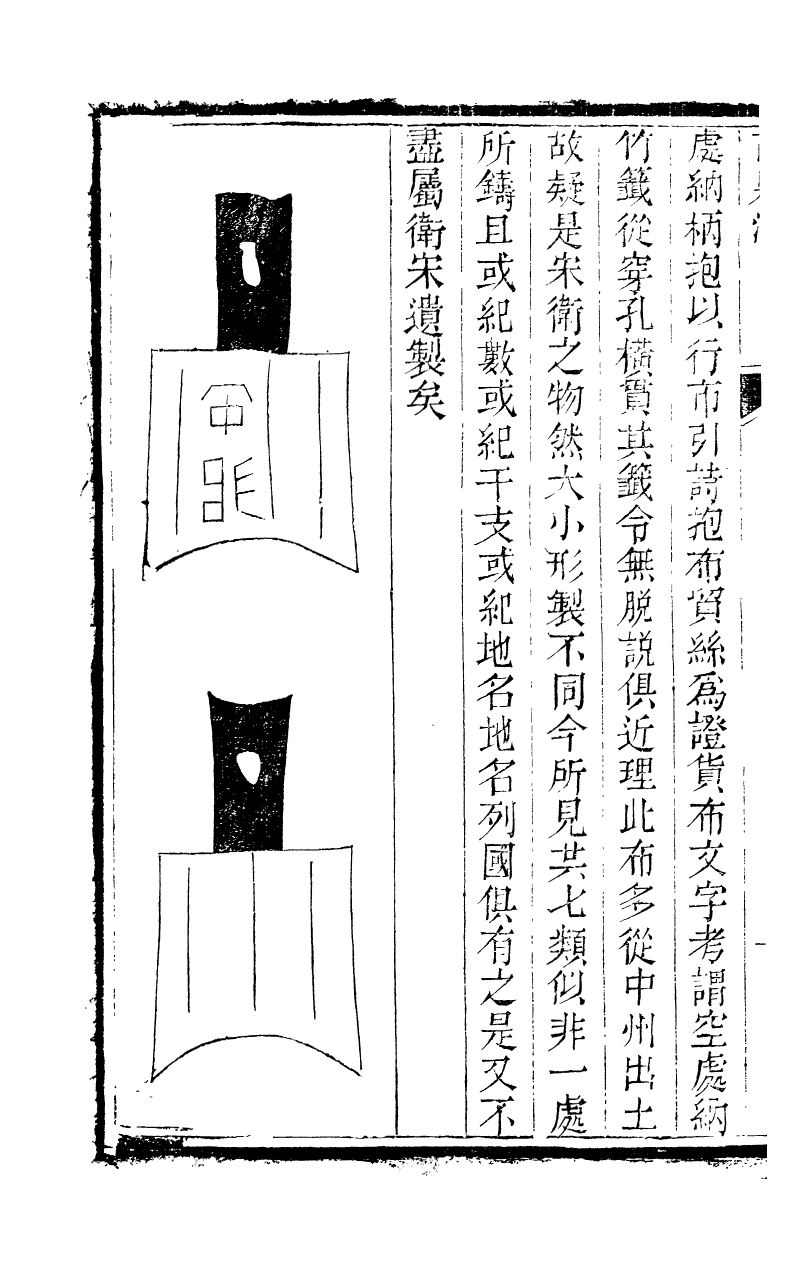 處納柄抱以行市引詩抱布貿絲爲證貨布文字考謂空處納
竹籤從穿孔橫貫其籤令無脫說俱近理此布多從中州出土
故疑是宋衛之物然大小形製不同今所見共七類似非一處
所鑄且或紀數或紀干支或紀地名地名列國俱有之是又不
盡屬衛宋遺製矣